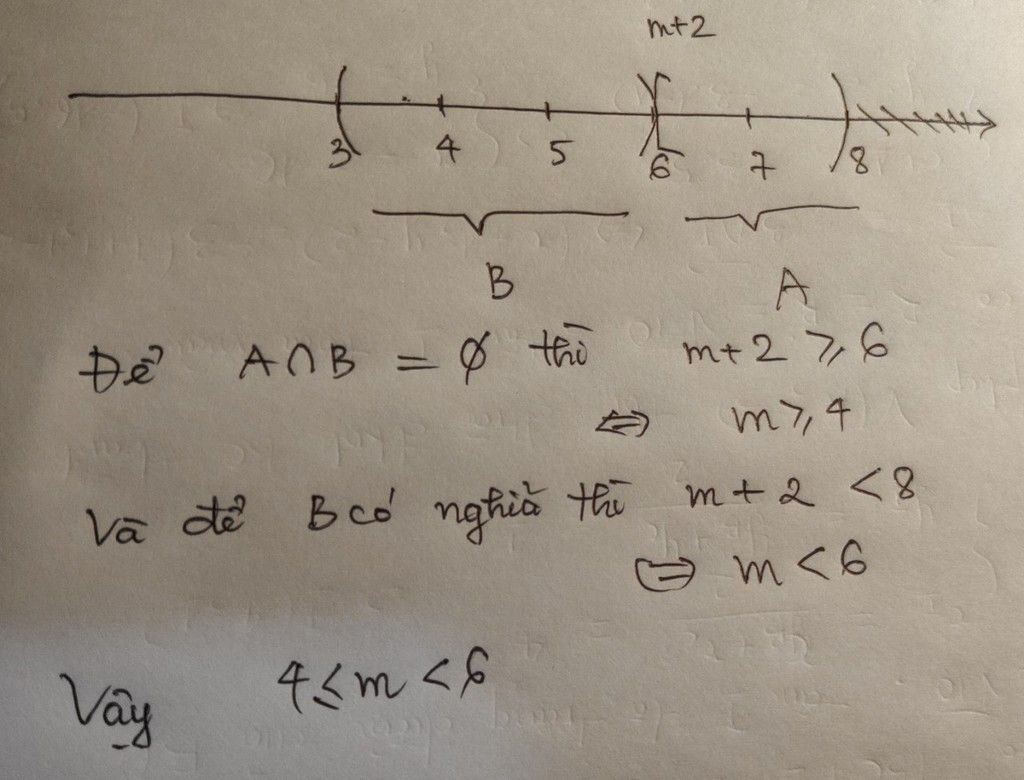 m+2
3 4 5 6 7 8
B A
Để A∩B = ∅ thì m+2 ⩾ 6
⇔ m ⩾ 4
Và để B có nghiã thì m+2 < 8
⇔ m < 6
Vậy 4 ≤ m < 6